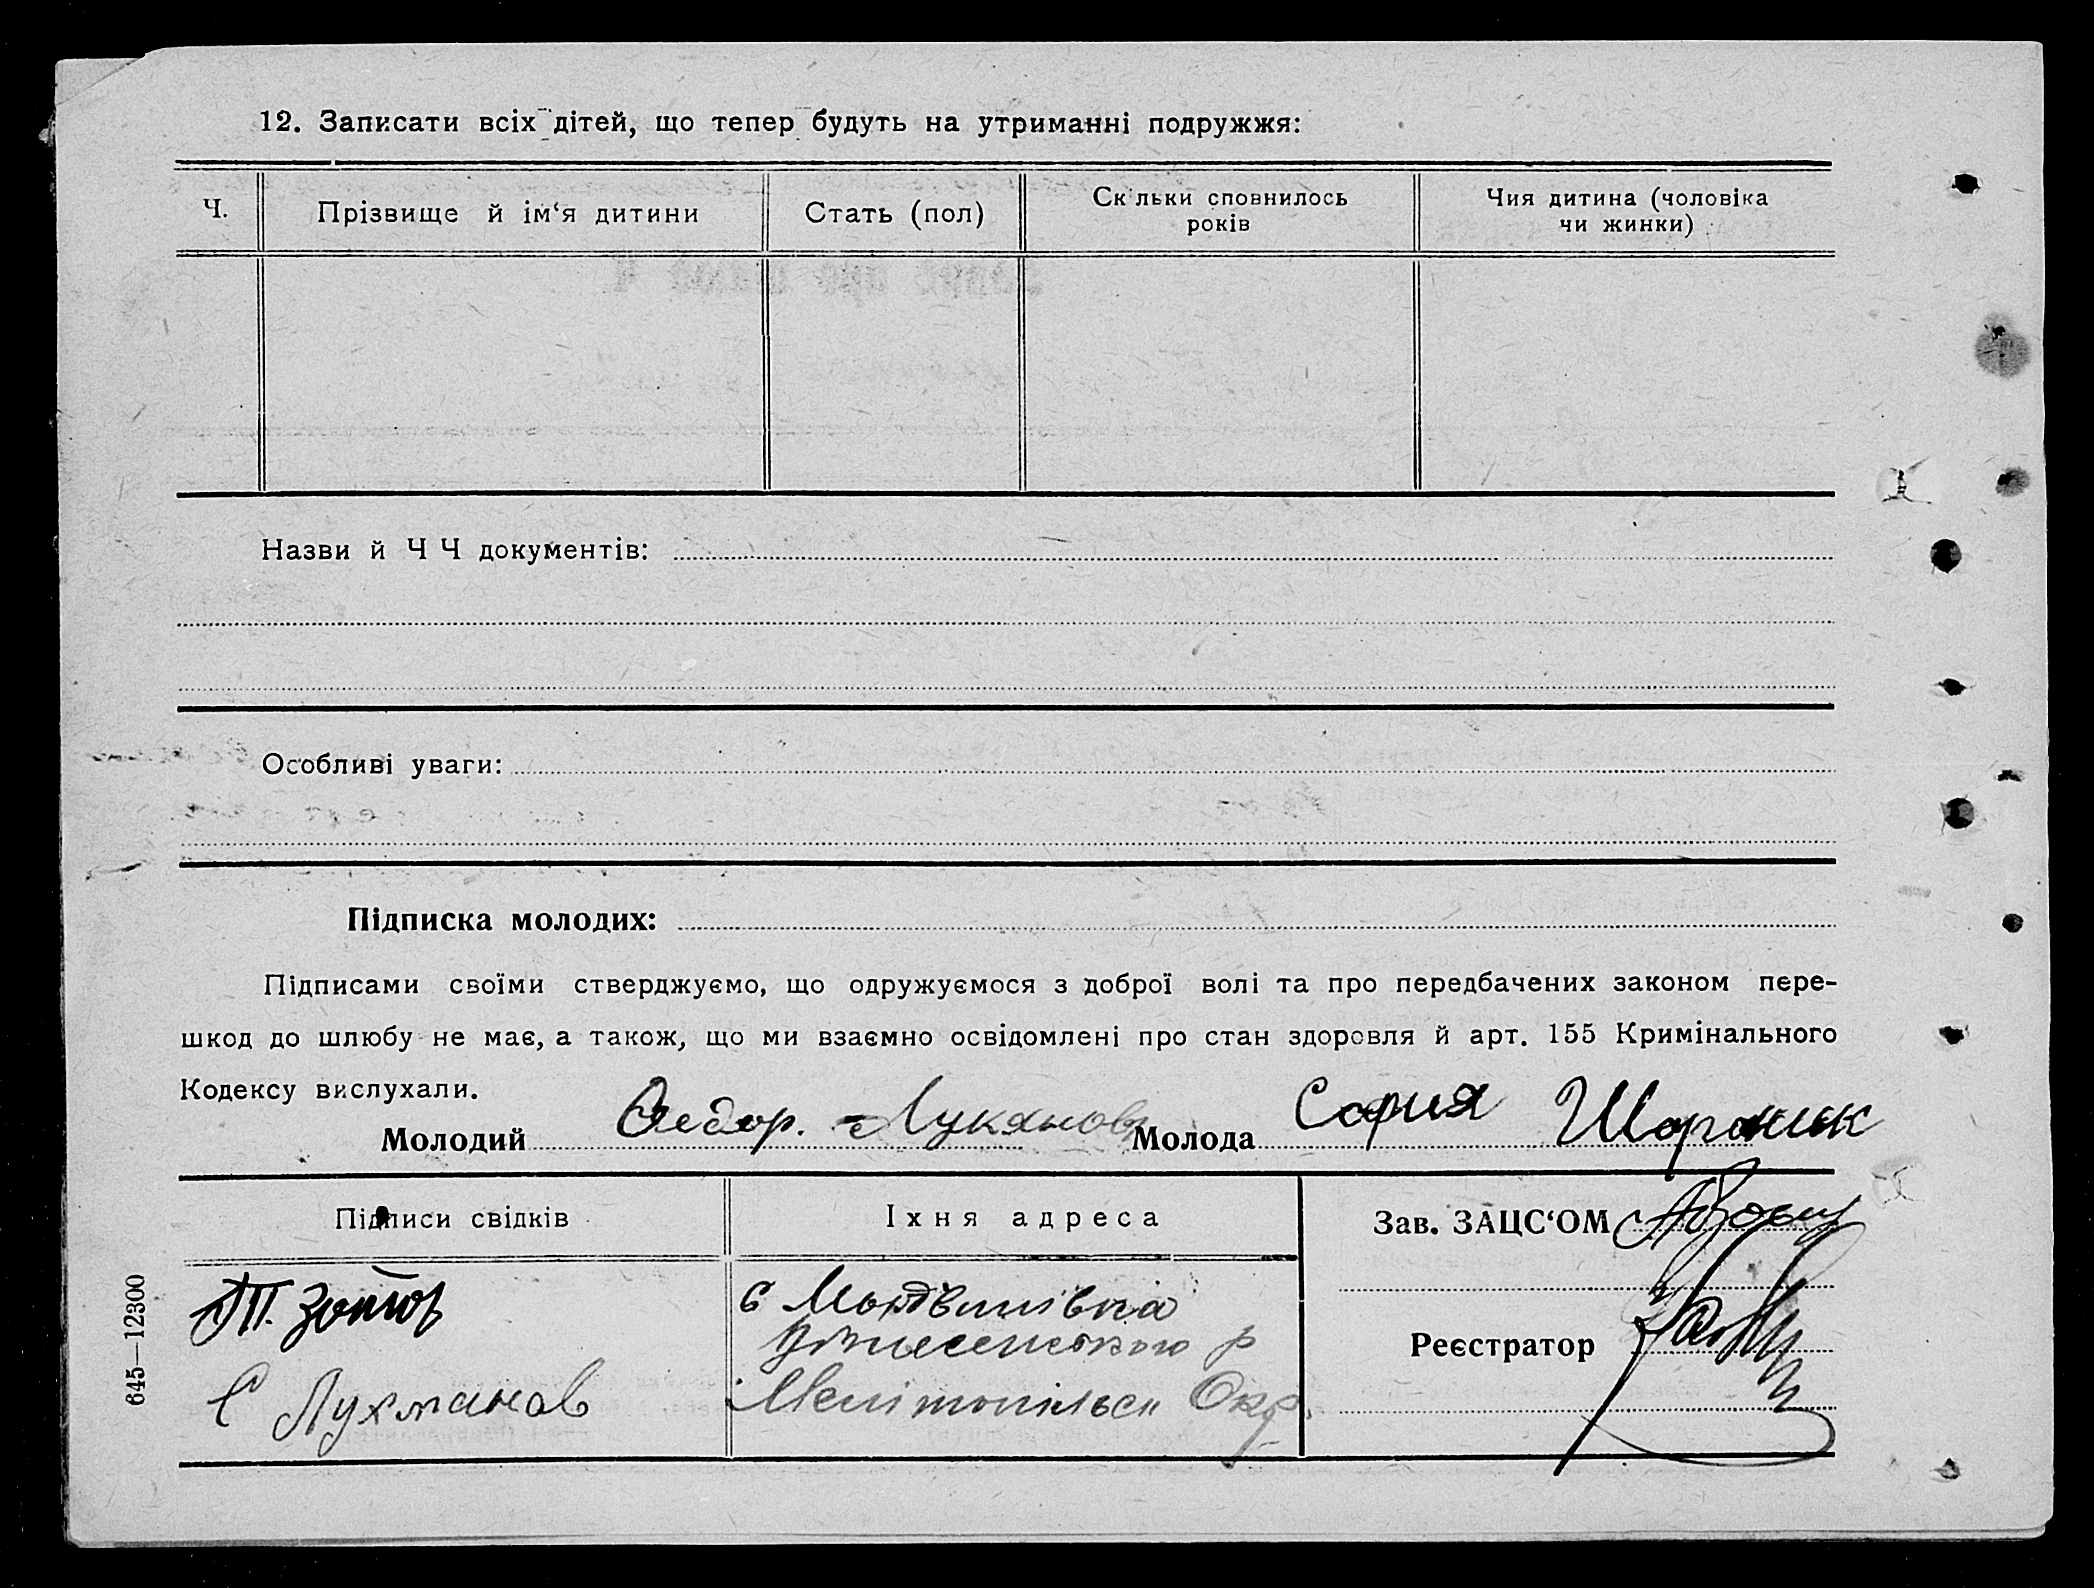 12. Записати всіх дітей, що тепер будуть на утриманні подружжя:
Ч.
Прізвище й ім‘я дитини
Стать (пол)
Ск льки сповнилось
років
Чия дитина (чоловіка
чи жинки)
Назви й Ч Ч документів:
Особливі уваги:
Підписка молодих:
Підписами своїми стверджуємо, що одружуємося з доброї волі та про передбачених законом пере-
шкод до шлюбу не має, а також, що ми взаємно освідомлені про стан здоровля й арт. 155 Кримінального
Кодексу вислухали.
Молодий Федор. Лукянов Молода София
Підписи свідків
Їхня адреса
Зав. ЗАЦС‘ОМ
Т. Зотов
С Лухманов
Мелітопільськ Окр.
Реєстратор
645—12300